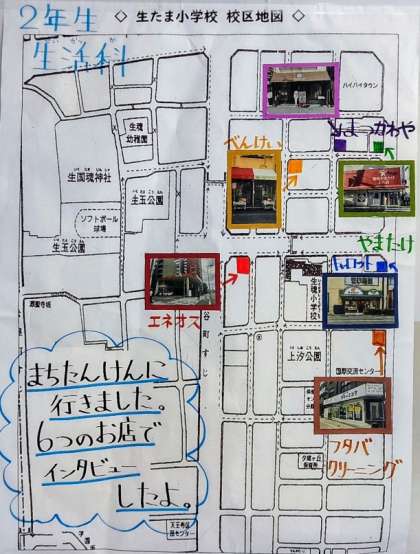 ◇ 生たま小学校 校区地図 ◇
2年生
生活科
ハイハイタウン
生魂
幼稚園
べんけい
生国魂神社
ソフトボール
球場
生玉公園
生玉公園
やまたけ
エネオス
生魂小学校
谷町すじ
上汐公園
国際交流センター
夕陽ヶ丘
保育所
フタバ
クリーニング
まちたんけんに
行きました。
6つのお店で
インタビュー
したよ。
天王寺区
民センター
学園